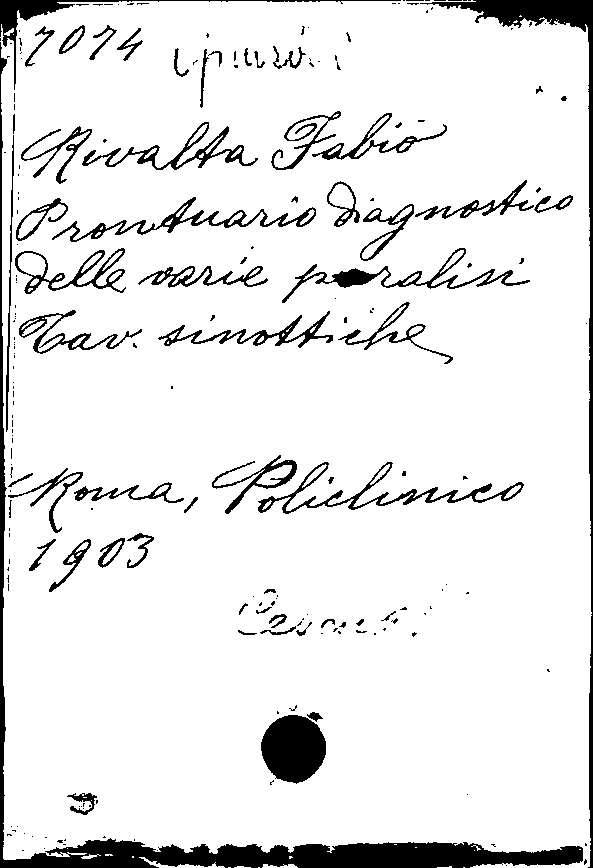 7074
Rivalta Fabio
Prontuario diagnostico
delle varie paralisi
Tav. sinottiche
Roma, Policlinico
1903